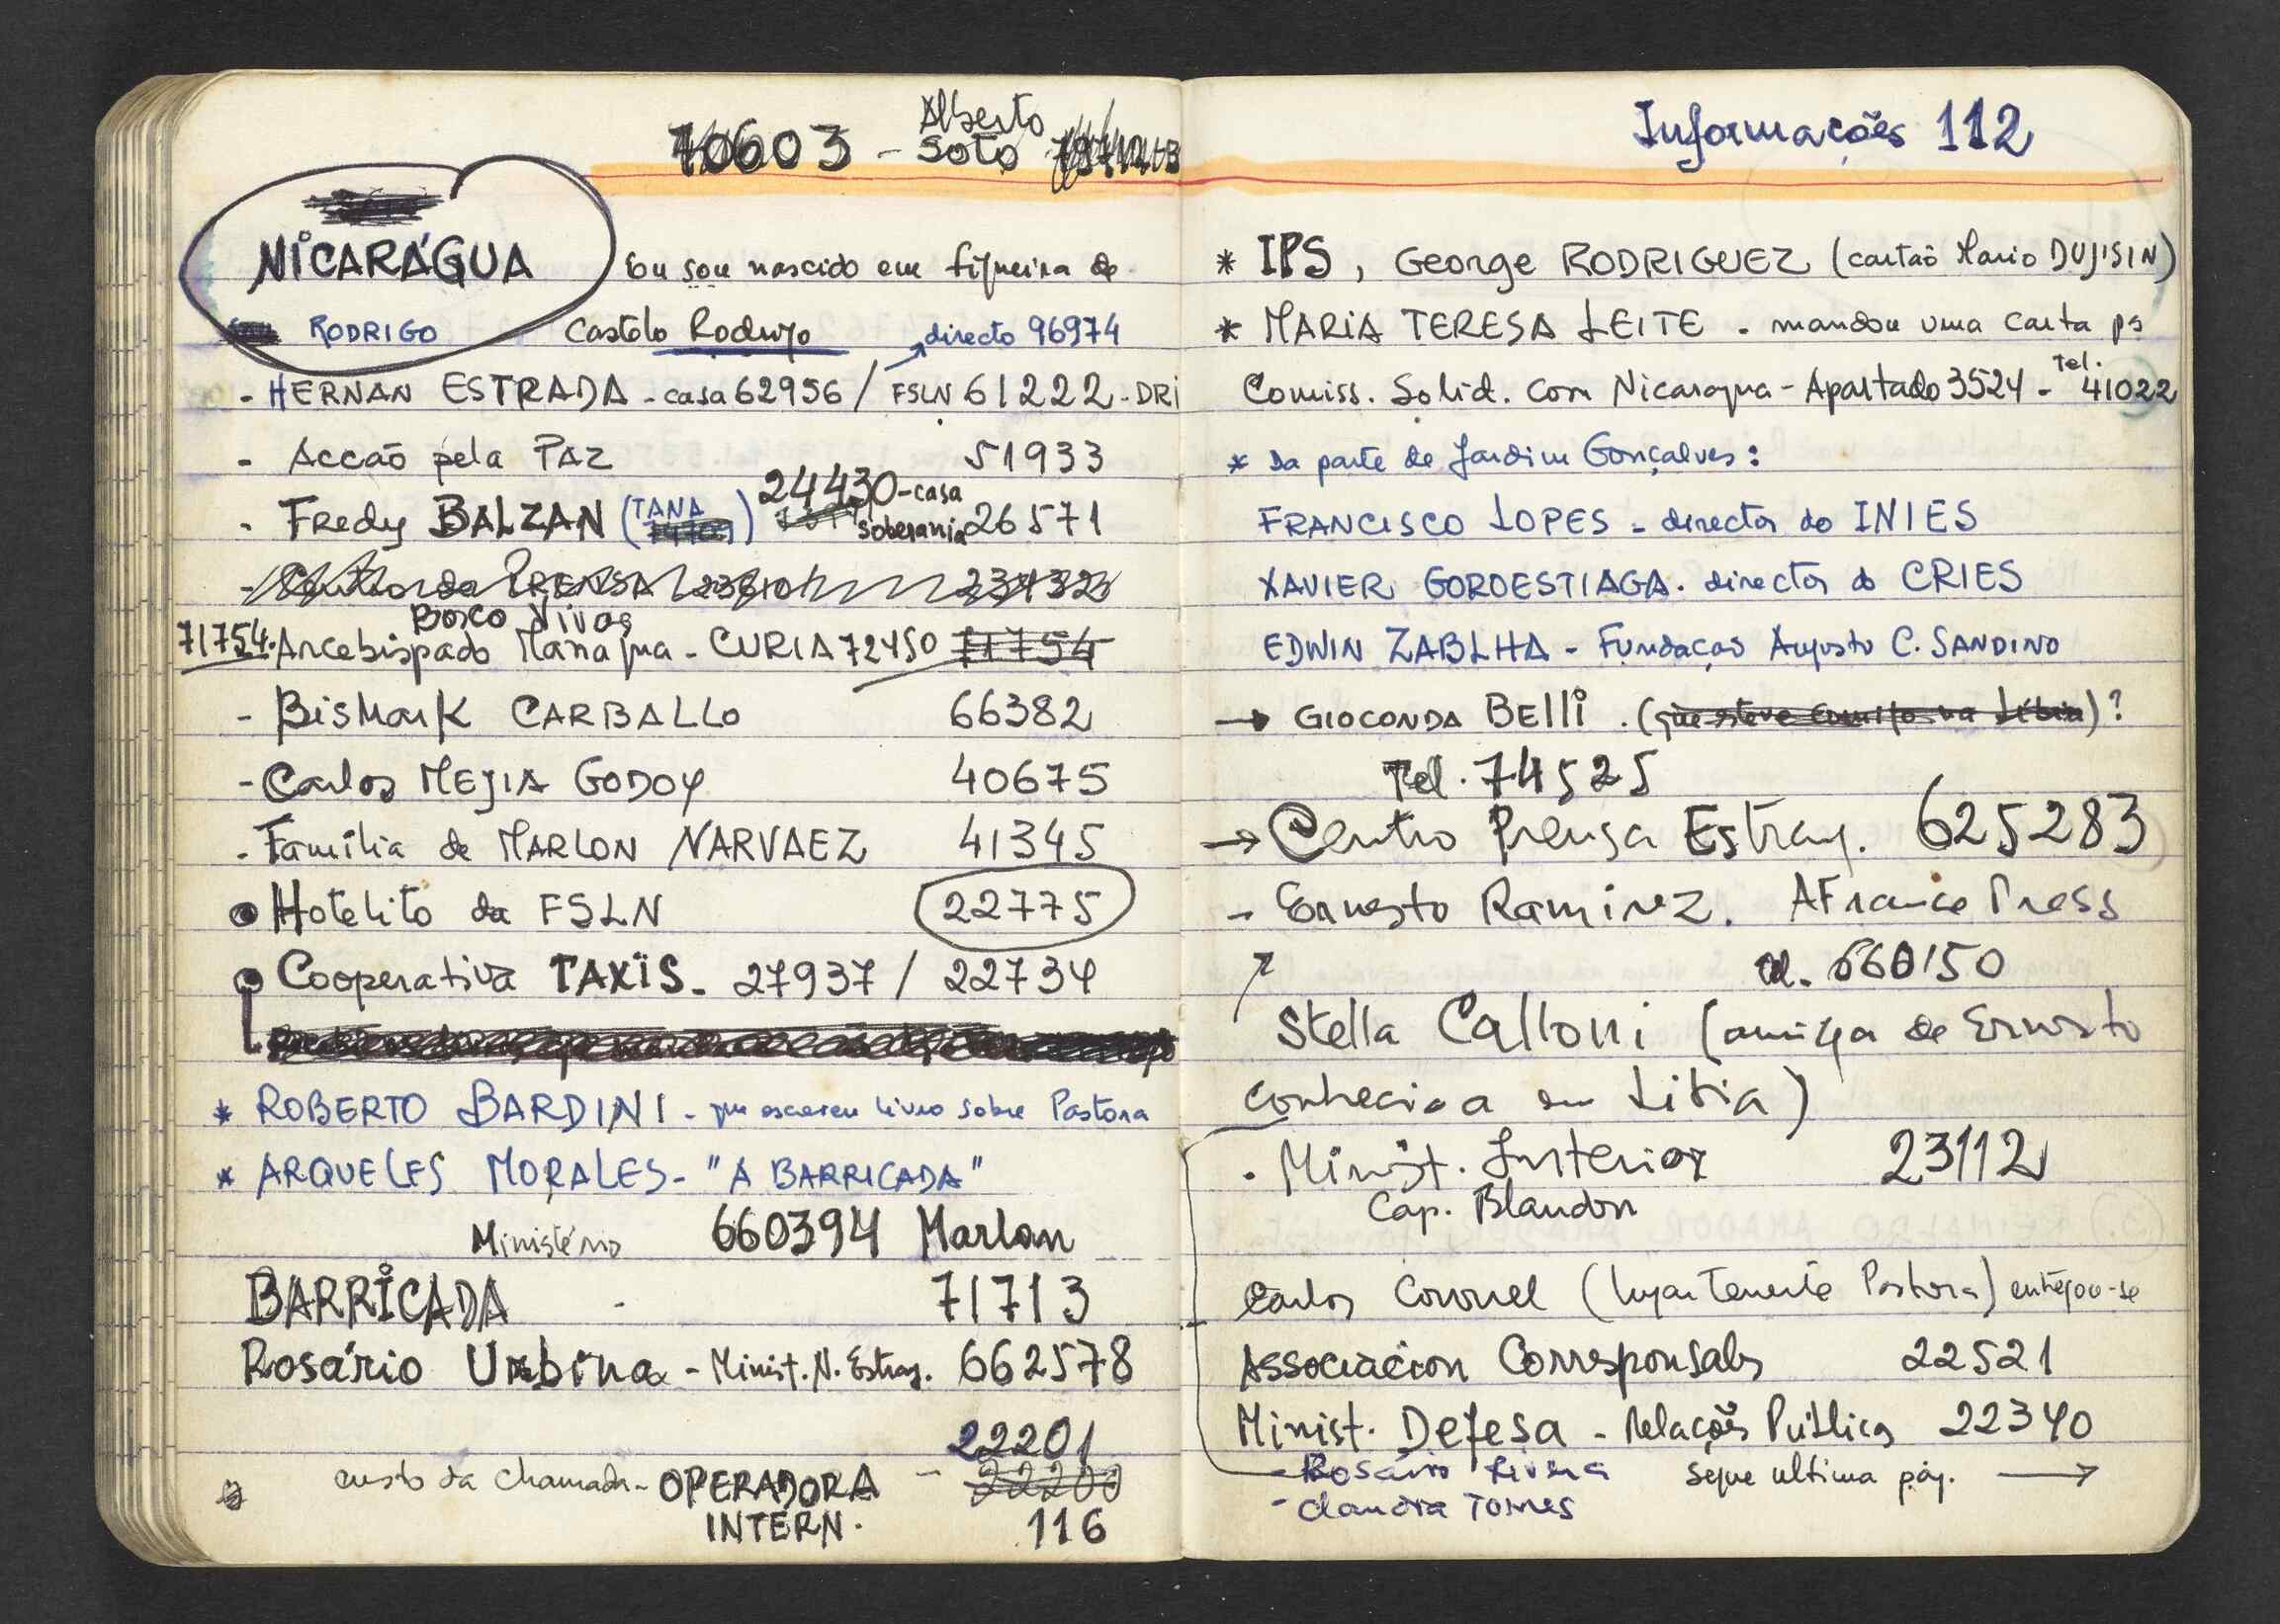 70603 - Alberto Soto
NICARÁGUA
Eu sou nascido em Figueira de
RODRIGO Castelo Rodrigo directo 96974
- HERNAN ESTRADA - casa 62956 / FSLN 61222 - DRI
- Accão pela PAZ 51933
24430 - casa
- Fredy BALZAN (TANA) soberania 26571
- PRENSA
Bosco Vivas
71754. Arcebispado Managua - CURIA 72450 71754
- Bismark CARBALLO 66382
- Carlos MEJIA GODOY 40675
- Família de MARLON NARVAEZ 41345
Hotelito da FSLN 22775
Cooperativa TAXÏS - 27937 / 22734
* ROBERTO BARDINI - que escreveu livro sobre Pastora
* ARQUELES MORALES - "A BARRICADA"
Ministério 660394 Marlon
BARRICADA - 71713
Rosário Urbina - Minist. N. Estrag. 662578
22201
custo da chamada - OPERADORA - 22200
INTERN. 116
Informações 112
* IPS, George RODRIGUEZ (cartão Mario DUJISIN)
* MARIA TERESA LEITE - mandou uma carta ps
Comiss. Solid. com Nicaragua - Apartado 3524 - Tel. 41022
* Da parte de Jardim Gonçalves:
FRANCISCO LOPES - director do INIES
XAVIER GOROESTIAGA - director do CRIES
EDWIN ZABLHA - Fundaçao Augusto C. SANDINO
→ GIOCONDA BELLI . (que esteve comigo na Líbia)?
Tel. 74525
→ Centro Prensa Estrag. 625283
- Ernesto Ramirez. AFrance Press
660150
Stella Calloni (amiga de Ernesto
conhecida em Libia)
. Minist. Interior 23112
Cap. Blandon
Carlos Coronel (lugarTenente Pastora) entregou-se
Associacion Corresponsales 22521
Minist. Defesa - Relações Publicas 22340
- Rosário segue ultima pág. →
- Claudia Torres